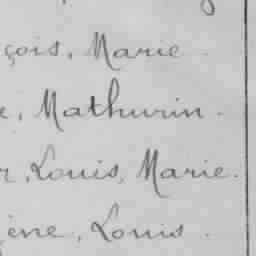 çois, Marie
e, Mathurin.
r, Louis, Marie.
gène, Louis.